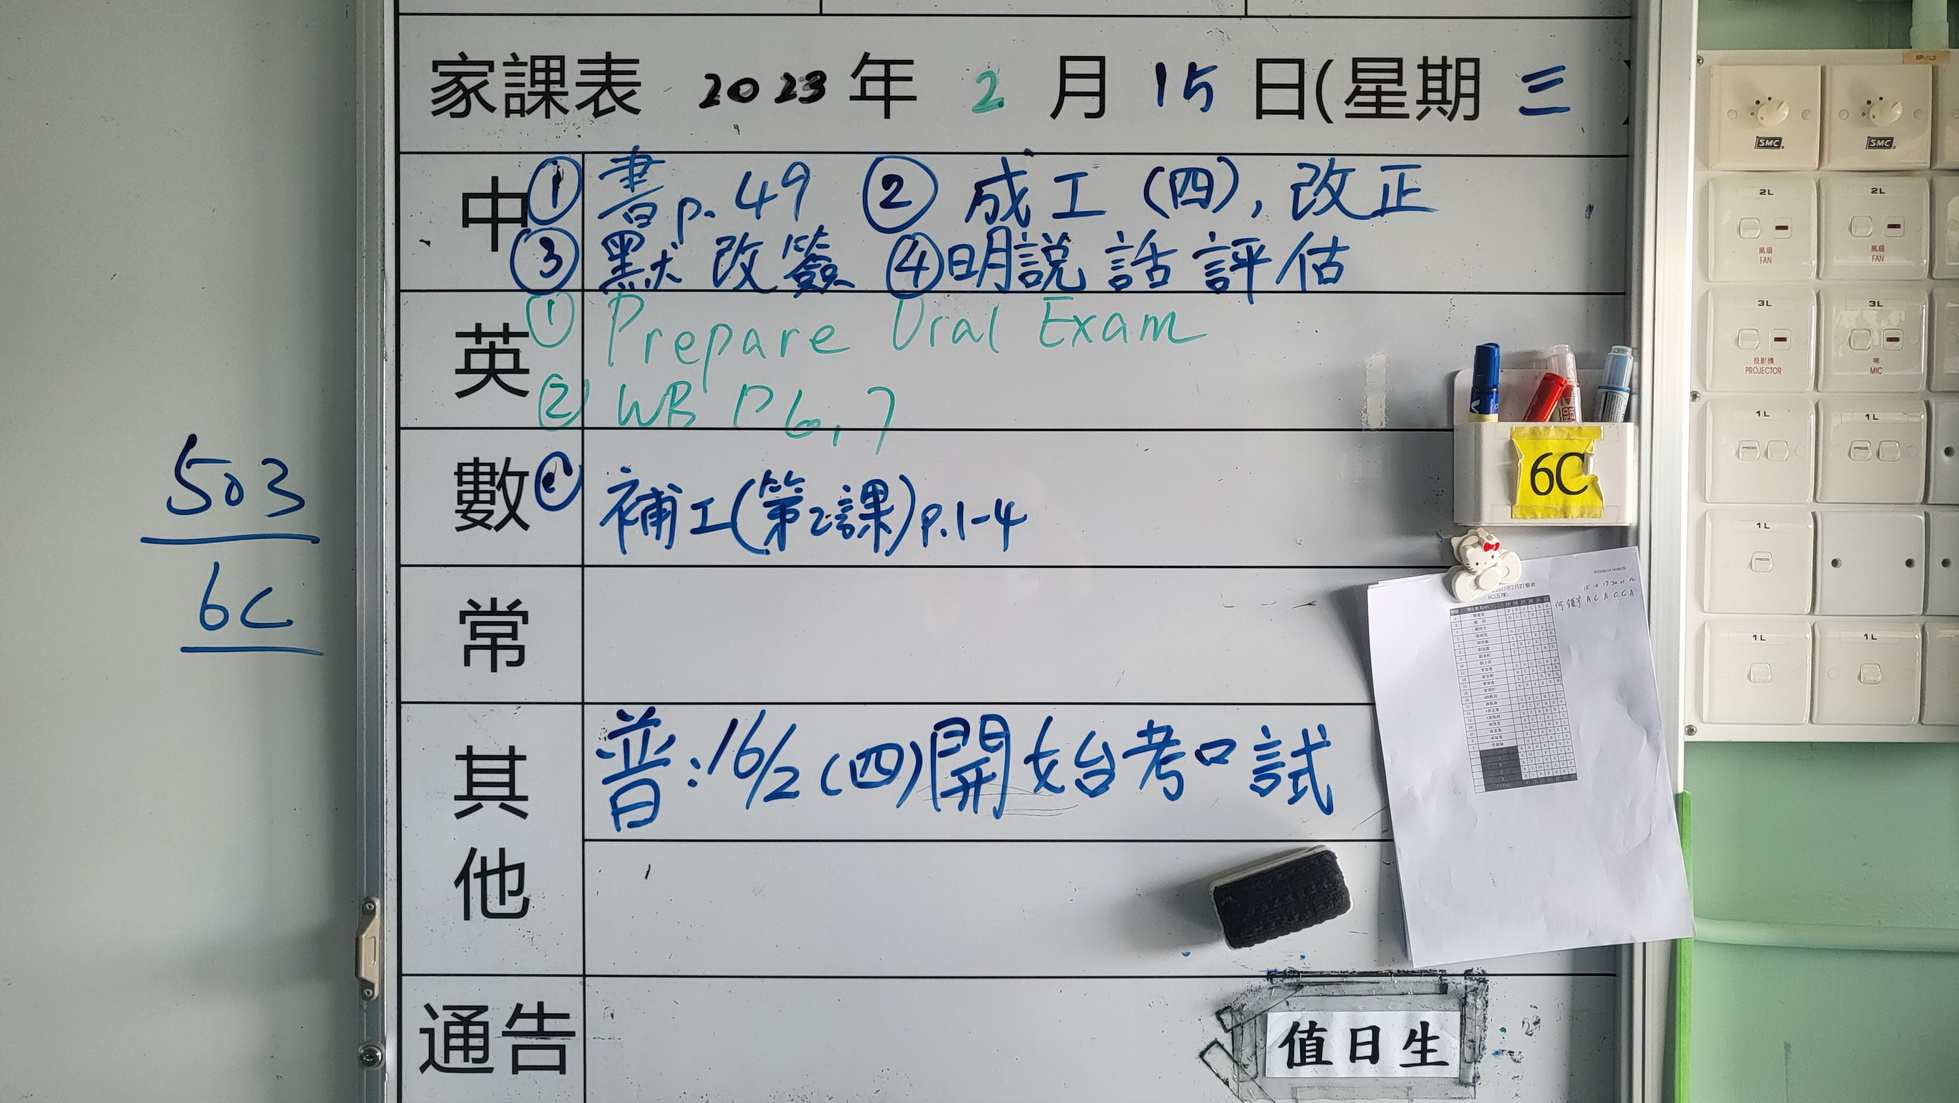 家課表 2023 年 2 月 15 日(星期 三
中 ① 書p.49 ② 成工(四),改正
③ 默改簽 ④明說話評估
英 ① Prepare Oral Exam
② WB P6,7
數 補工(第2課)p.1-4
常
其他 普:16/2(四)開始考口試
通告
值日生
503
6C
6C
SMC
SMC
2L
風扇
FAN
2L
風扇
FAN
3L
投影機
PROJECTOR
3L
咪
MIC
1L
1L
1L
1L
1L